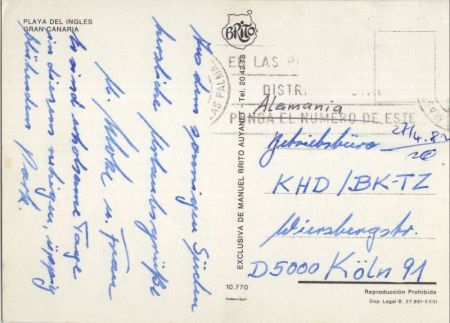 PLAYA DEL INGLES
GRAN CANARIA
Aus dem sonnigen Süden
herzliche Urlaubsgrüße
u. Frau
Es sind erholsame Tage
in diesem ruhigen, üppig
blühenden Park.
BRITO
EXCLUSIVA DE MANUEL BRITO AUYANET Tel. 20 42 75
10.770
EN LAS P
DISTR
PONGA EL NUMERO DE ESTE
LAS PALMAS
Alemania
Betriebsbüro
KHD/BK-TZ
Wiersbergstr.
D5000 Köln 91
Reproducción Prohibida
Dep. Legal B. 27.691-XXIII